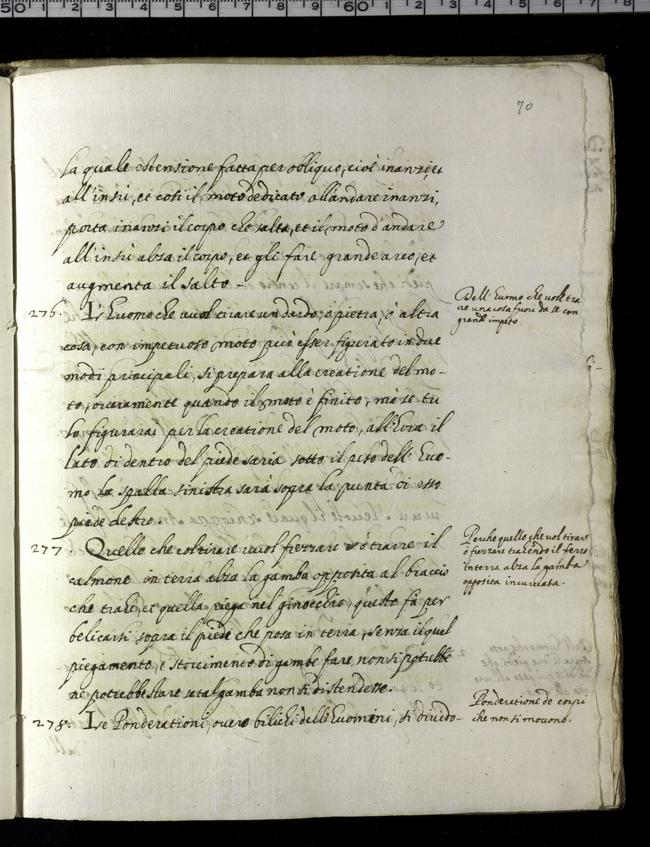 70
la quale estensione fatta per obliquo, cioè inanzi, et
all'insù, et così il moto dedicato all'andare inanzi,
porta inanzi il corpo che salta, et il moto d'andare
all'insù alza il corpo, et gli fare grande arco, et
augmenta il salto -
276. L'Euomo che vuol tirare un dardo, ò pietra, ò altra
cosa, con impetuoso moto può esser figurato in due
modi principali, si prepara alla creatione del mo-
to, overamente quando il moto è finito, ma se tu
lo figurarai per la creatione del moto, all'hora il
lato di dentro del piede saria sotto il peso dell'Euo-
mo la spalla sinistra sarà sopra la punta di esso
piede destro.
Dell'Euomo che vole tra
re una cosa fuori da se con
grande impeto.
277 Quello che col tirare vuol fierzare ò trarre il
calmone in terra alza la gamba opposita al braccio
che trahe, et quella piega nel ginocchio, questo fà per
belicarsi sopra il piede che posa in terra, senza il quel
piegamento, e storcimento di gambe fare non si potrebbe
ne potrebbe stare se tal gamba non si distendesse.
Perche quello che vol tirare
ò fierzare trahendo il ferro
in terra alza la gamba
opposita incurvata.
278. Le Ponderationi, overo bilichi delli Euomini, si divido-
Ponderatione de corpi
che non si movono.